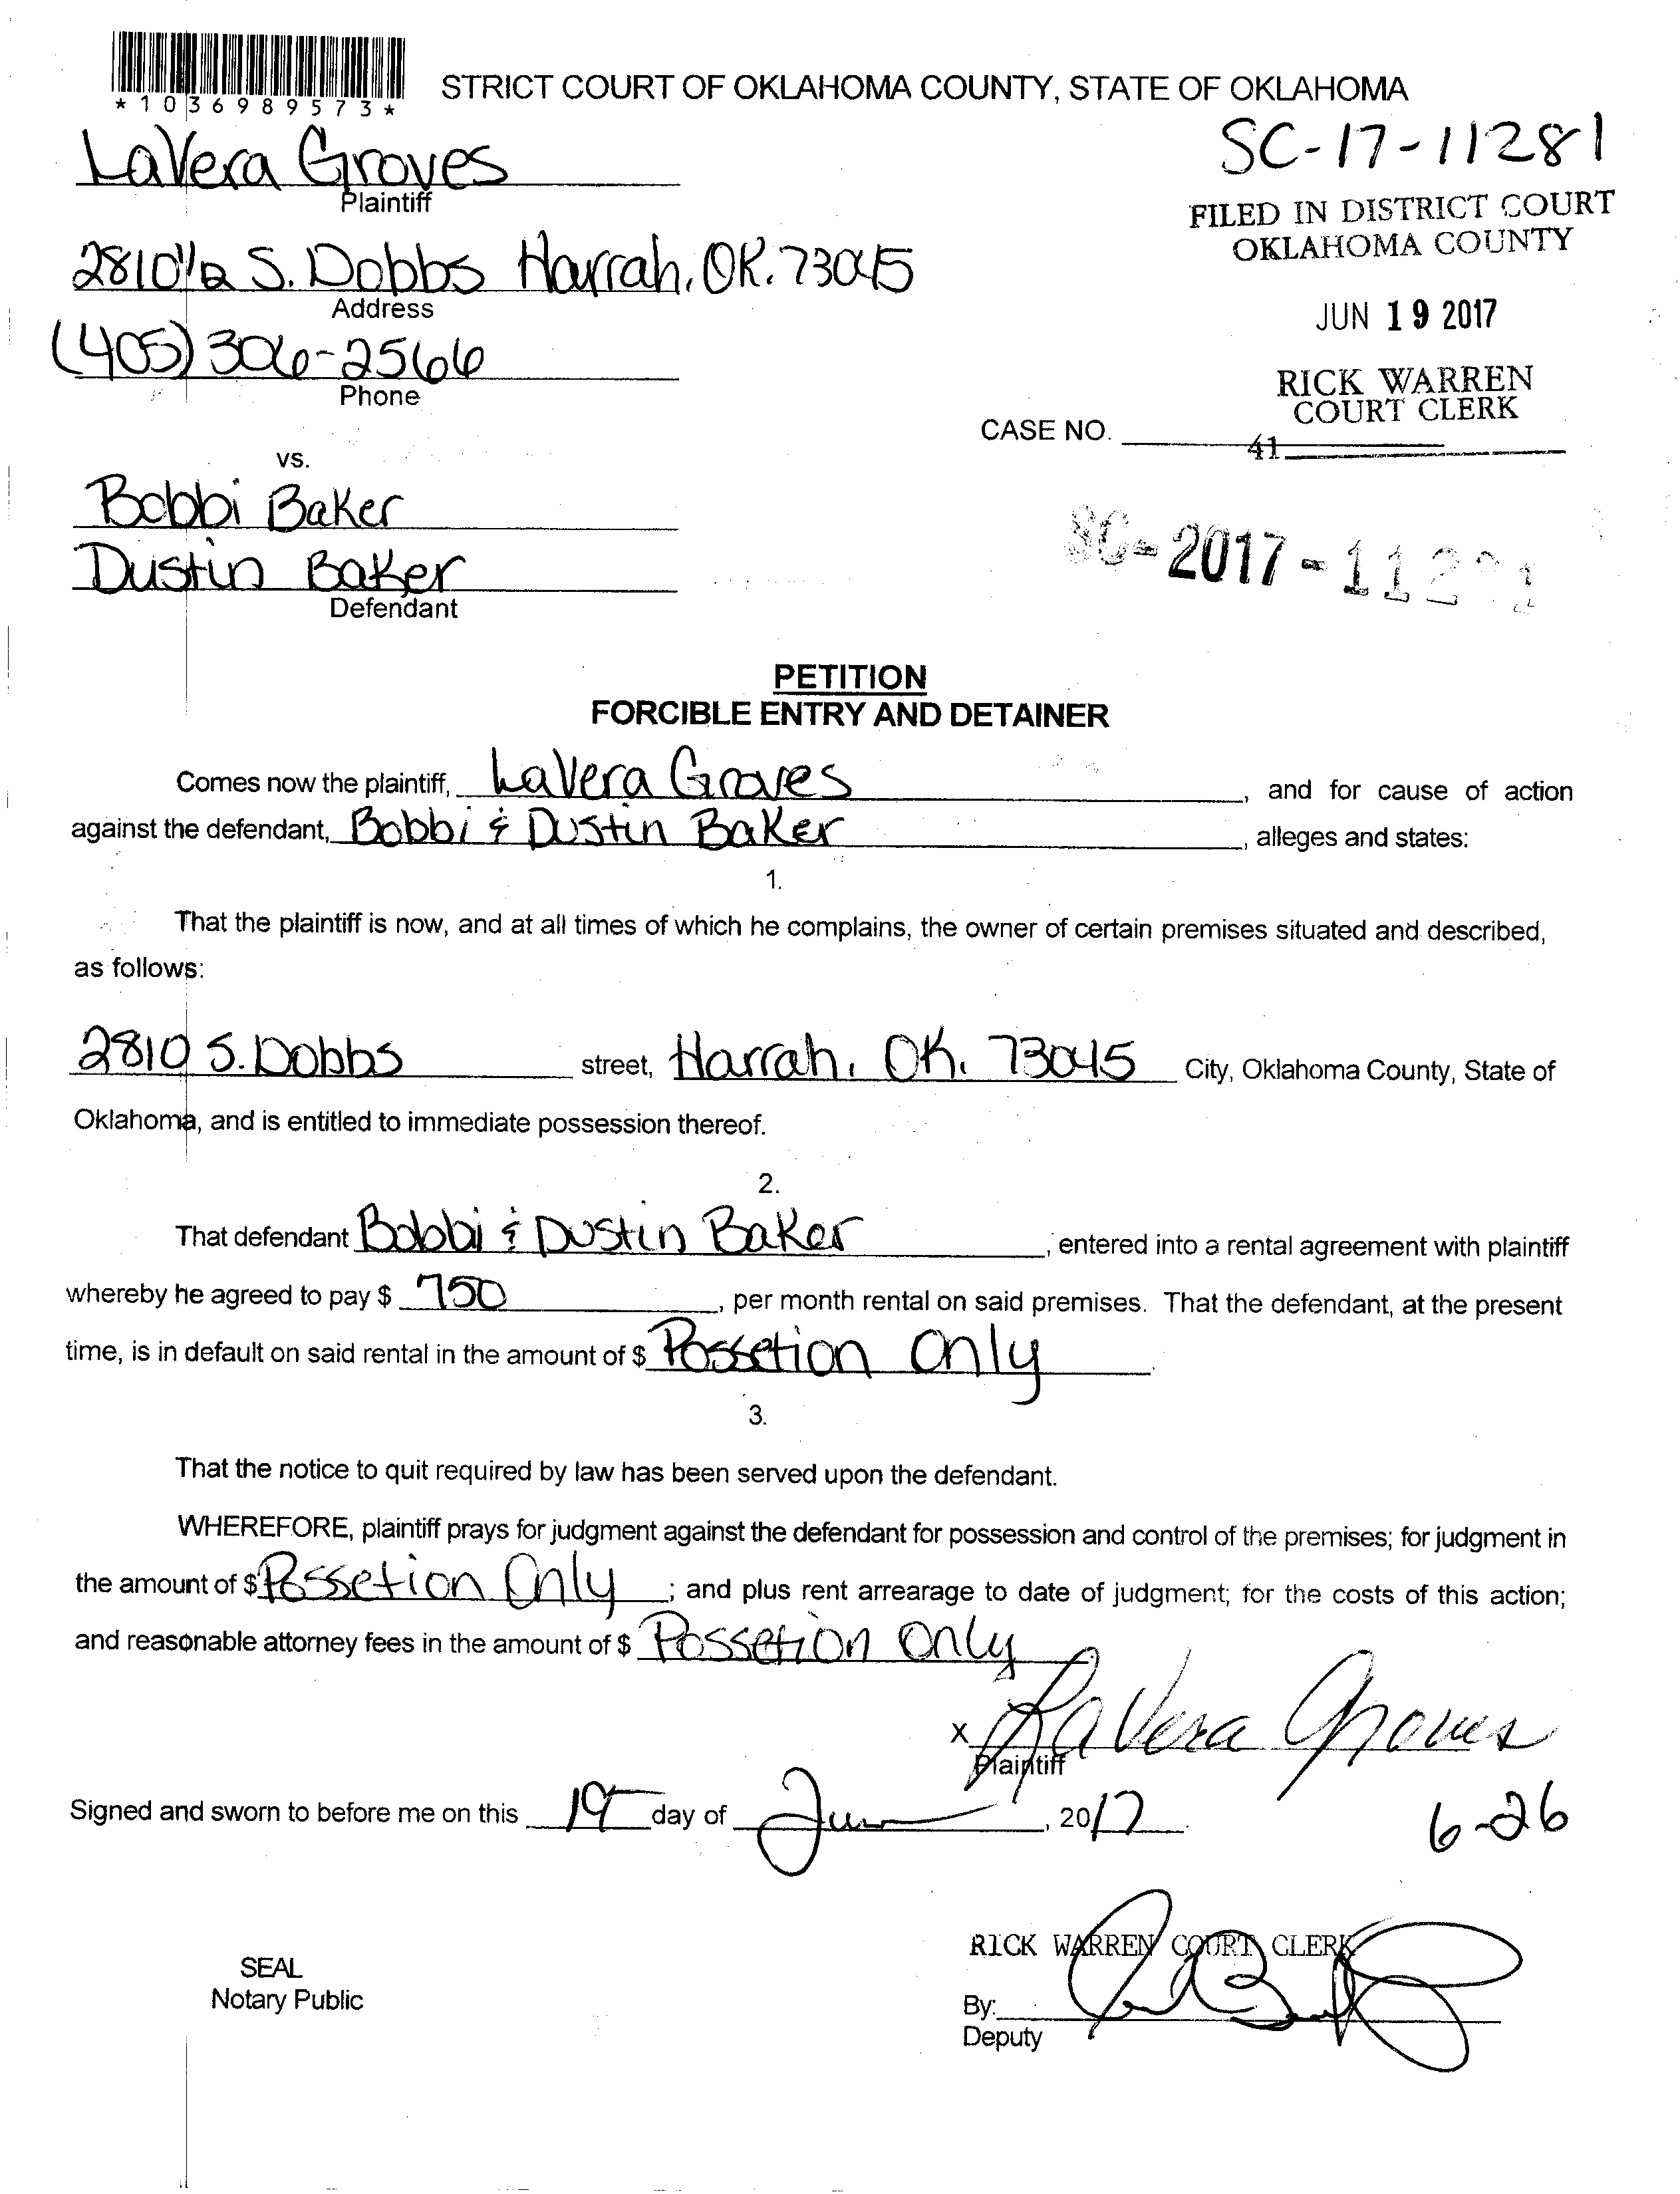 *1036989573*
STRICT COURT OF OKLAHOMA COUNTY, STATE OF OKLAHOMA
LaVera Groves
Plaintiff
SC-17-11281
FILED IN DISTRICT COURT
OKLAHOMA COUNTY
2810 1/2 S. Dobbs Harrah, OK. 73045
Address
JUN 19 2017
(405) 306-2566
Phone
RICK WARREN
COURT CLERK
CASE NO.
41
vs.
Bobbi Baker
Dustin Baker
Defendant
SC-2017-112
PETITION
FORCIBLE ENTRY AND DETAINER
Comes now the plaintiff, LaVera Groves, and for cause of action
against the defendant, Bobbi & Dustin Baker, alleges and states:
1.
That the plaintiff is now, and at all times of which he complains, the owner of certain premises situated and described,
as follows:
2810 S. Dobbs street, Harrah, OK. 73045 City, Oklahoma County, State of
Oklahoma, and is entitled to immediate possession thereof.
2.
That defendant Bobbi & Dustin Baker, entered into a rental agreement with plaintiff
whereby he agreed to pay $ 750, per month rental on said premises. That the defendant, at the present
time, is in default on said rental in the amount of $ Possetion Only.
3.
That the notice to quit required by law has been served upon the defendant.
WHEREFORE, plaintiff prays for judgment against the defendant for possession and control of the premises; for judgment in
the amount of $ Possetion Only; and plus rent arrearage to date of judgment; for the costs of this action;
and reasonable attorney fees in the amount of $ Possetion Only
x LaVera Groves
Plaintiff
Signed and sworn to before me on this 19 day of June, 2017.
6-26
RICK WARREN COURT CLERK
SEAL
Notary Public
By:
Deputy